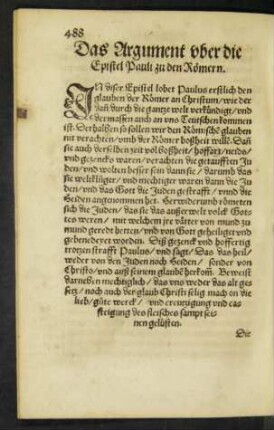 488
Das Argument vber die
Epistel Pauli zu den Römern.
IN diser Epistel lobet Paulus erstlich den
glauben der Römer an Christum/ wie der
dañ durch die gantze welt verkündigt/ vnd
dermassen auch an vns Teutschen kommen
ist. Derhalben so sollen wir den Römische glauben
nit verachten/ vmb der Römer boßheit willē. Dañ
sie auch derselben zeit vol boßheit/ hoffart/ neids/
vnd gezencks waren/ verachten die getaufften Jü
den/ vnd wolten besser sein dann sie/ darumb das
sie weltklüger/ vnd mechtiger waren dann die Ju
den/ vnd das Gott die Juden gestrafft/ vnnd die
Heiden angenommen het. Herwiderumb römeten
sich die Juden/ das sie das außerwelt volck Gott
tes weren/ mit welchem jre vätter von mund zu
mund geredt hetten/ vnd von Gott geheiliget vnd
gebenedeyet worden. Diß gezenck vnd hoffertig
trotzen strafft Paulus/ vnd sagt/ Das das heil/
weder von den Juden noch Heiden/ sonder von
Christo/ und auß seinem glaubē herkom̃. Beweist
darneben mechtiglich/ das vns weder das alt ges
setz/ noch auch der glaub Christi selig mach on die
lieb/ gůte werck/ vnd creutzigung vnd cas
steigung des fleisches sampt sei
nen gelüsten.
Die